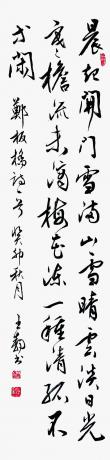 晨起開门雪满山雪晴雲淡日光
寒檐流未滴梅花凍一種清孤不
等閑
鄭板橋诗 癸卯秋月 王 书